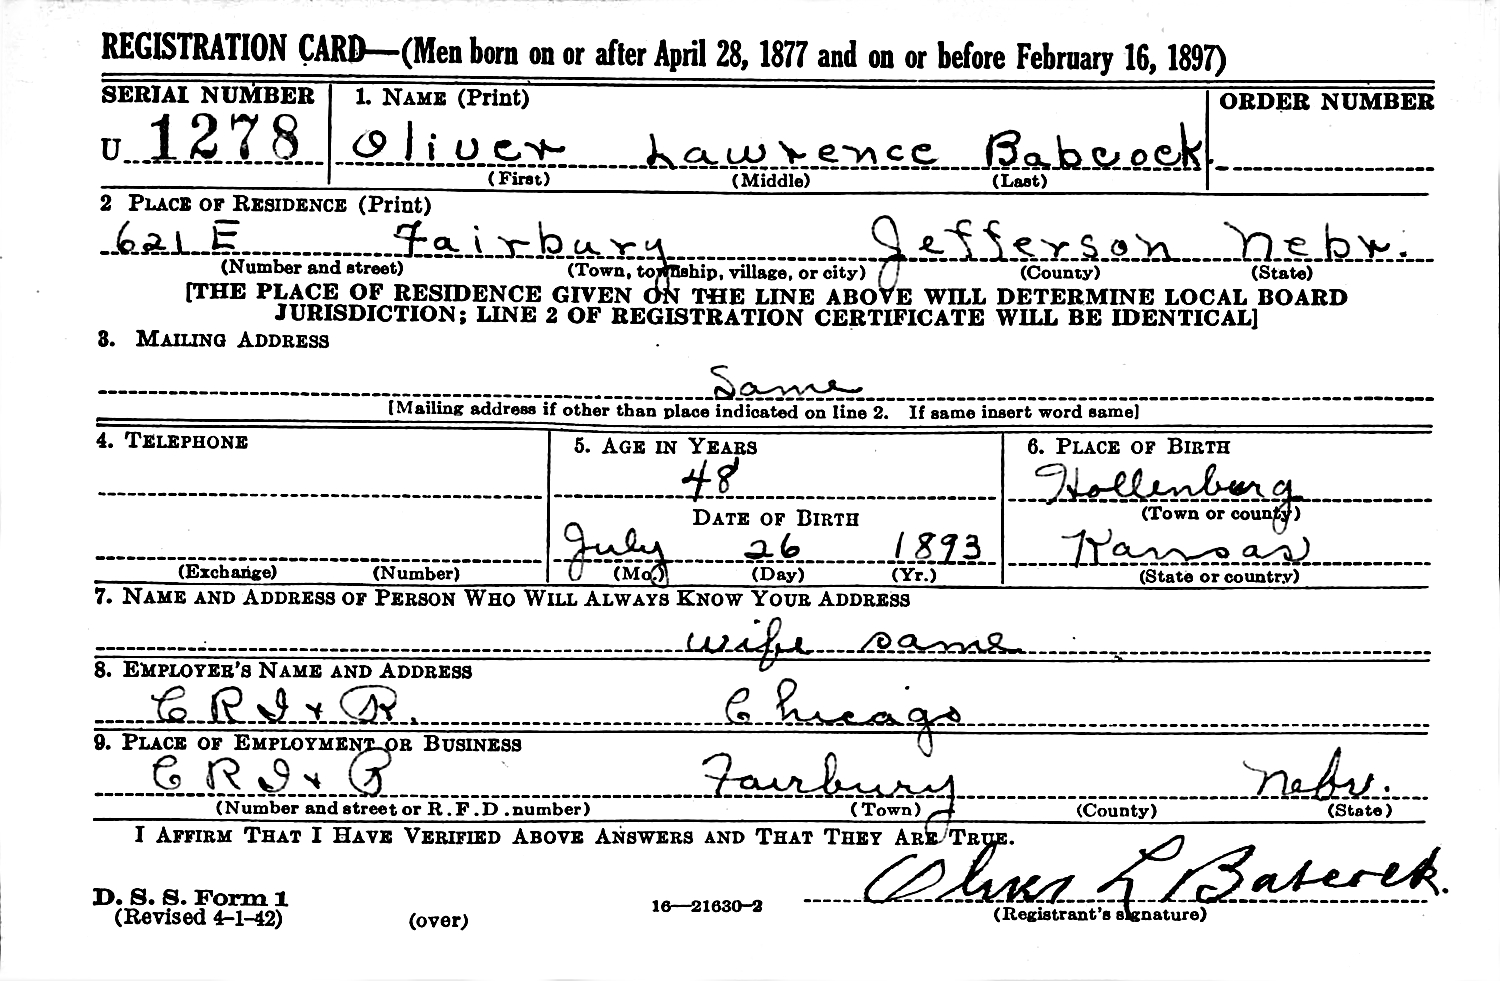 REGISTRATION CARD—(Men born on or after April 28, 1877 and on or before February 16, 1897)
SERIAL NUMBER 1. NAME (Print) ORDER NUMBER
U 1278 Oliver Lawrence Babcock
(First) (Middle) (Last)
2 PLACE OF RESIDENCE (Print)
621 E Fairbury Jefferson Nebr.
(Number and street) (Town, township, village, or city) (County) (State)
[THE PLACE OF RESIDENCE GIVEN ON THE LINE ABOVE WILL DETERMINE LOCAL BOARD
JURISDICTION; LINE 2 OF REGISTRATION CERTIFICATE WILL BE IDENTICAL]
3. MAILING ADDRESS
Same
[Mailing address if other than place indicated on line 2. If same insert word same]
4. TELEPHONE 5. AGE IN YEARS 6. PLACE OF BIRTH
48 Hollenburg
DATE OF BIRTH (Town or county)
July 26 1893 Kansas
(Exchange) (Number) (Mo.) (Day) (Yr.) (State or country)
7. NAME AND ADDRESS OF PERSON WHO WILL ALWAYS KNOW YOUR ADDRESS
wife same
8. EMPLOYER'S NAME AND ADDRESS
C R I + R. Chicago
9. PLACE OF EMPLOYMENT OR BUSINESS
C R I + P Fairbury Nebr.
(Number and street or R. F. D. number) (Town) (County) (State)
I AFFIRM THAT I HAVE VERIFIED ABOVE ANSWERS AND THAT THEY ARE TRUE.
Oliver L Babcock.
D. S. S. Form 1
(Revised 4-1-42) (over) 16—21630-2 (Registrant's signature)